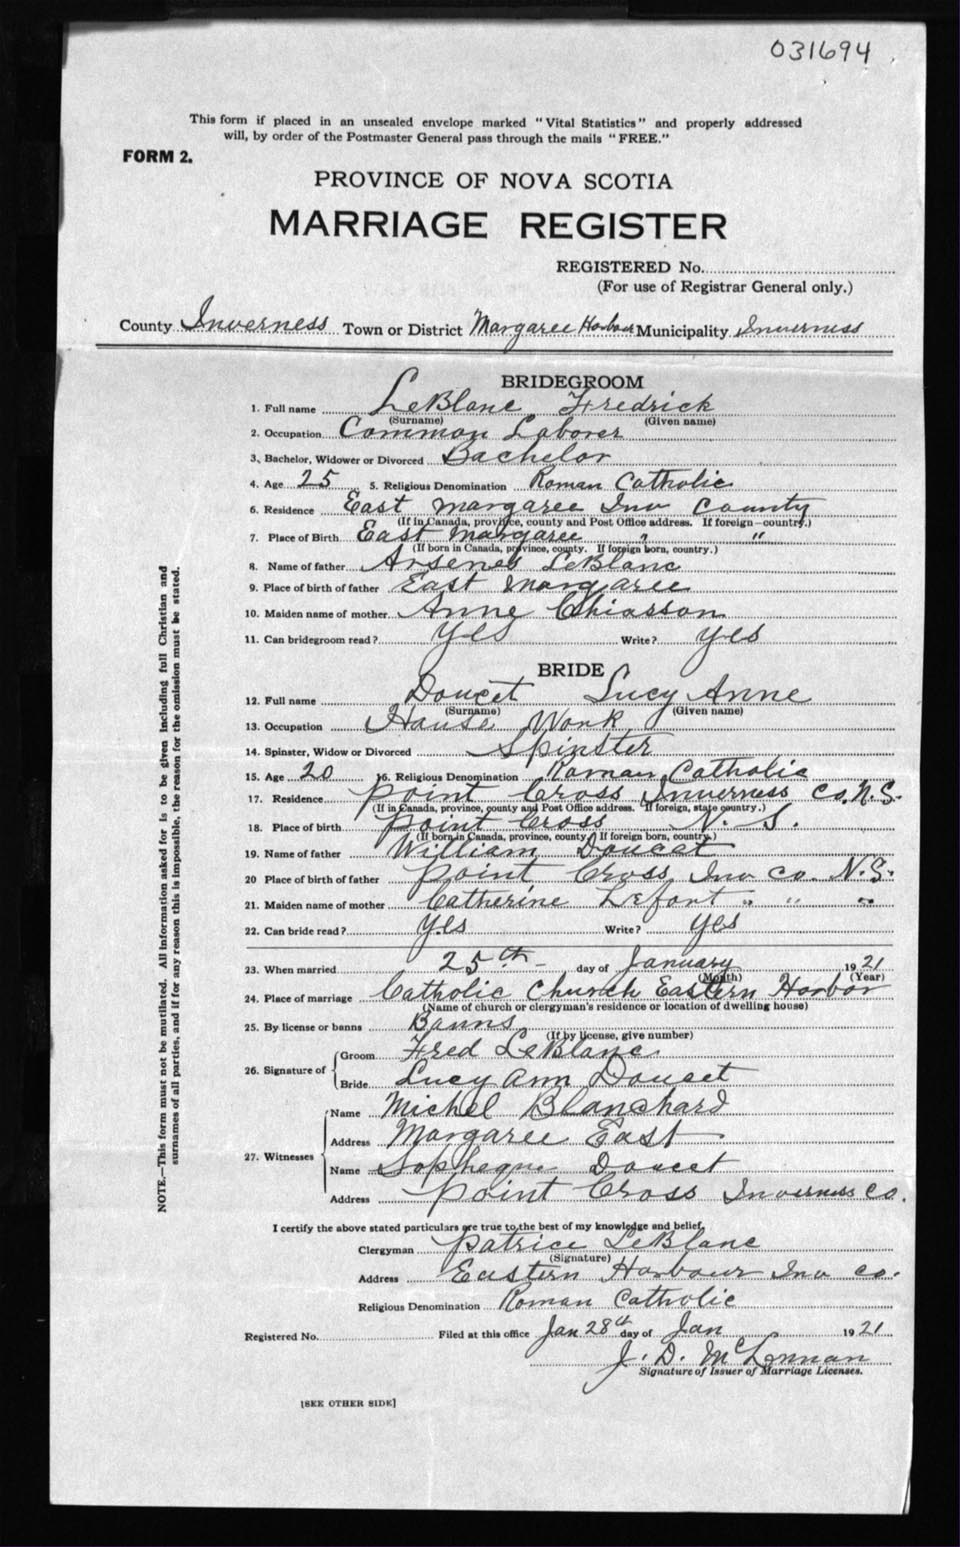 031694
This form if placed in an unsealed envelope marked "Vital Statistics" and properly addressed
will, by order of the Postmaster General pass through the mails "FREE."
FORM 2.
PROVINCE OF NOVA SCOTIA
MARRIAGE REGISTER
REGISTERED No.
(For use of Registrar General only.)
County Inverness Town or District Margaree Harbour Municipality Inverness
BRIDEGROOM
1. Full name LeBlanc Fredrick
(Surname) (Given name)
2. Occupation Common Laborer
3. Bachelor, Widower or Divorced Bachelor
4. Age 25 5. Religious Denomination Roman Catholic
6. Residence East Margaree Inv County
(If in Canada, province, county and Post Office address. If foreign—country.)
7. Place of Birth East Margaree " "
(If born in Canada, province, county. If foreign born, country.)
8. Name of father Arsene LeBlanc
9. Place of birth of father East Margaree
10. Maiden name of mother Anne Chiasson
11. Can bridegroom read? Yes Write? Yes
BRIDE
12. Full name Doucet Lucy Anne
(Surname) (Given name)
13. Occupation House Work
14. Spinster, Widow or Divorced Spinster
15. Age 20 16. Religious Denomination Roman Catholic
17. Residence Point Cross Inverness Co. N.S.
(If in Canada, province, county and Post Office address. If foreign, state country.)
18. Place of birth Point Cross N. S.
(If born in Canada, province, county. If foreign born, country.)
19. Name of father William Doucet
20 Place of birth of father Point Cross Inv Co. N.S.
21. Maiden name of mother Catherine Lefort " " "
22. Can bride read? Yes Write? Yes
23. When married 25th day of January 1921
(Month) (Year)
24. Place of marriage Catholic Church Eastern Harbor
(Name of church or clergyman's residence or location of dwelling house)
25. By license or banns Banns
(If by license, give number)
26. Signature of Groom Fred LeBlanc
Bride Lucy Ann Doucet
27. Witnesses Name Michel Blanchard
Address Margaree East
Name Doucet
Address Point Cross Inverness Co.
I certify the above stated particulars are true to the best of my knowledge and belief,
Clergyman Patrice LeBlanc
(Signature)
Address Eastern Harbour Inv Co.
Religious Denomination Roman Catholic
Registered No. Filed at this office Jan 28th day of Jan 1921
J. D. McLennan
Signature of Issuer of Marriage Licenses.
[SEE OTHER SIDE]
NOTE.—This form must not be mutilated. All information asked for is to be given including full Christian and
surnames of all parties, and if for any reason this is impossible, the reason for the omission must be stated.